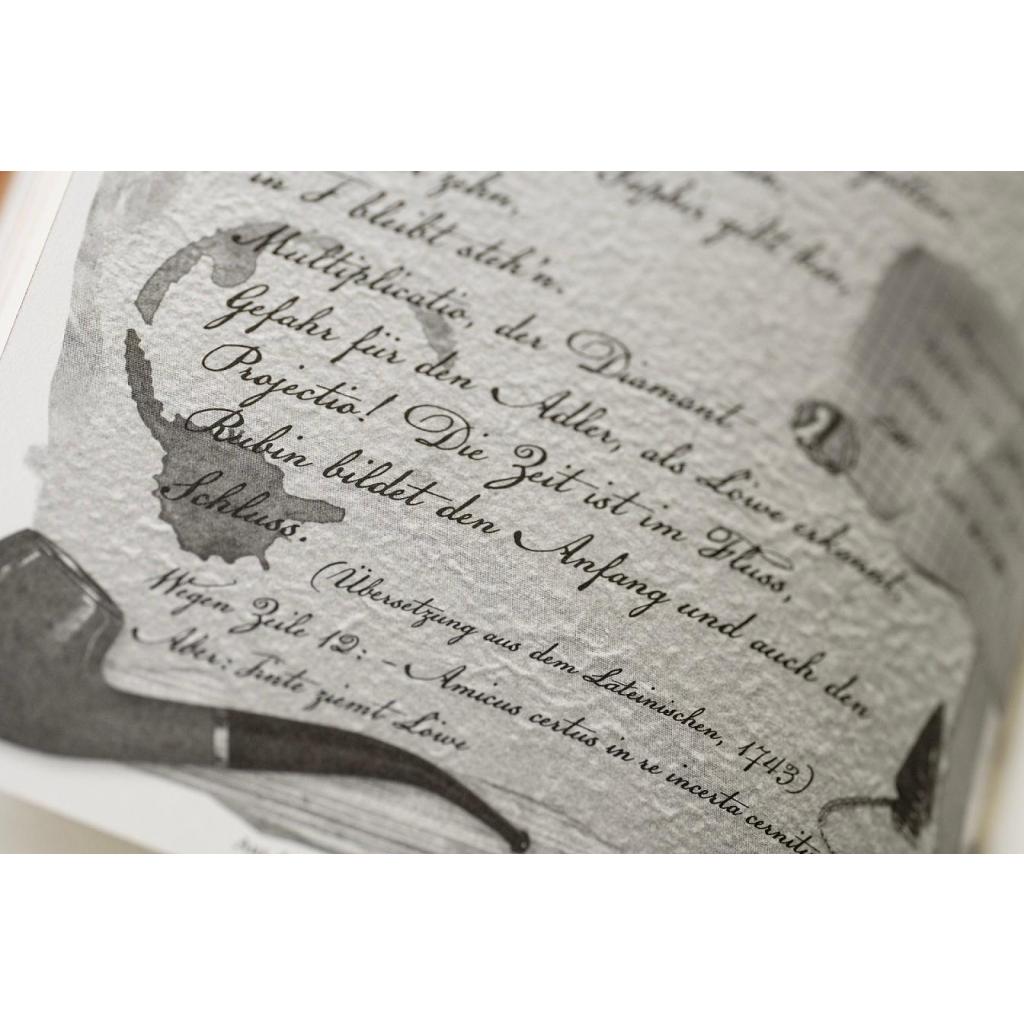 Saphir geht hin,
zehn,
in F bleibt steh'n.
Multiplicatio, der Diamant –
Gefahr für den Adler, als Löwe erkannt,
Projectio! Die Zeit ist im Fluss,
Rubin bildet den Anfang und auch den
Schluss.
(Übersetzung aus dem Lateinischen, 1743)
Wegen Zeile 12: – Amicus certus in re incerta cernitur
Aber: Tinte ziemt Löwe